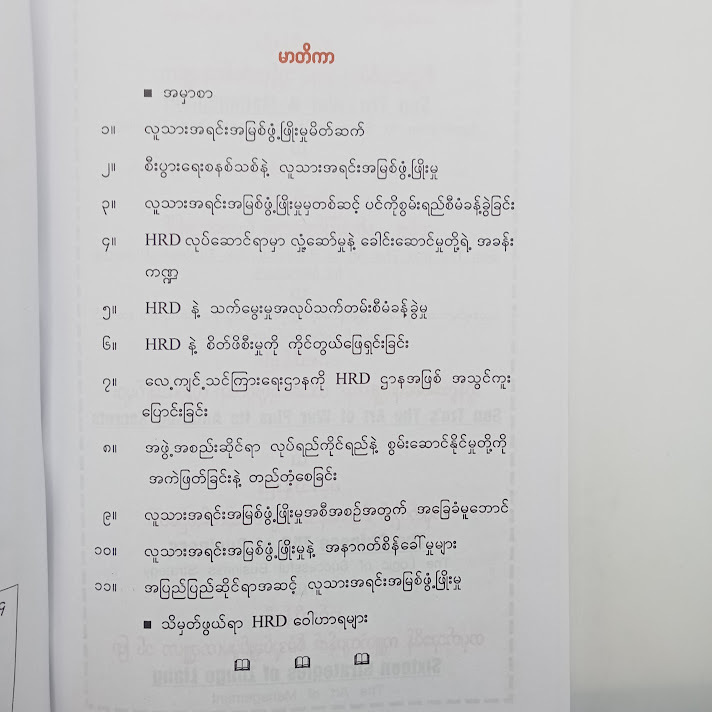 မာတိကာ
■ အမှာစာ
၁။ လူသားအရင်းအမြစ်ဖွံ့ဖြိုးမှုမိတ်ဆက်
၂။ စီးပွားရေးစနစ်သစ်နဲ့ လူသားအရင်းအမြစ်ဖွံ့ဖြိုးမှု
၃။ လူသားအရင်းအမြစ်ဖွံ့ဖြိုးမှုမှတစ်ဆင့် ပင်ကိုစွမ်းရည်စီမံခန့်ခွဲခြင်း
၄။ HRD လုပ်ဆောင်ရာမှာ လှုံ့ဆော်မှုနဲ့ ခေါင်းဆောင်မှုတို့ရဲ့ အခန်း
ကဏ္ဍ
၅။ HRD နဲ့ သက်မွေးမှုအလုပ်သက်တမ်းစီမံခန့်ခွဲမှု
၆။ HRD နဲ့ စိတ်ဖိစီးမှုကို ကိုင်တွယ်ဖြေရှင်းခြင်း
၇။ လေ့ကျင့်သင်ကြားရေးဌာနကို HRD ဌာနအဖြစ် အသွင်ကူး
ပြောင်းခြင်း
၈။ အဖွဲ့အစည်းဆိုင်ရာ လုပ်ရည်ကိုင်ရည်နဲ့ စွမ်းဆောင်နိုင်မှုတို့ကို
အကဲဖြတ်ခြင်းနဲ့ တည်တံ့စေခြင်း
၉။ လူသားအရင်းအမြစ်ဖွံ့ဖြိုးမှုအစီအစဉ်အတွက် အခြေခံမူဘောင်
၁၀။ လူသားအရင်းအမြစ်ဖွံ့ဖြိုးမှုနဲ့ အနာဂတ်စိန်ခေါ်မှုများ
၁၁။ အပြည်ပြည်ဆိုင်ရာအဆင့် လူသားအရင်းအမြစ်ဖွံ့ဖြိုးမှု
■ သိမှတ်ဖွယ်ရာ HRD ဝေါဟာရများ